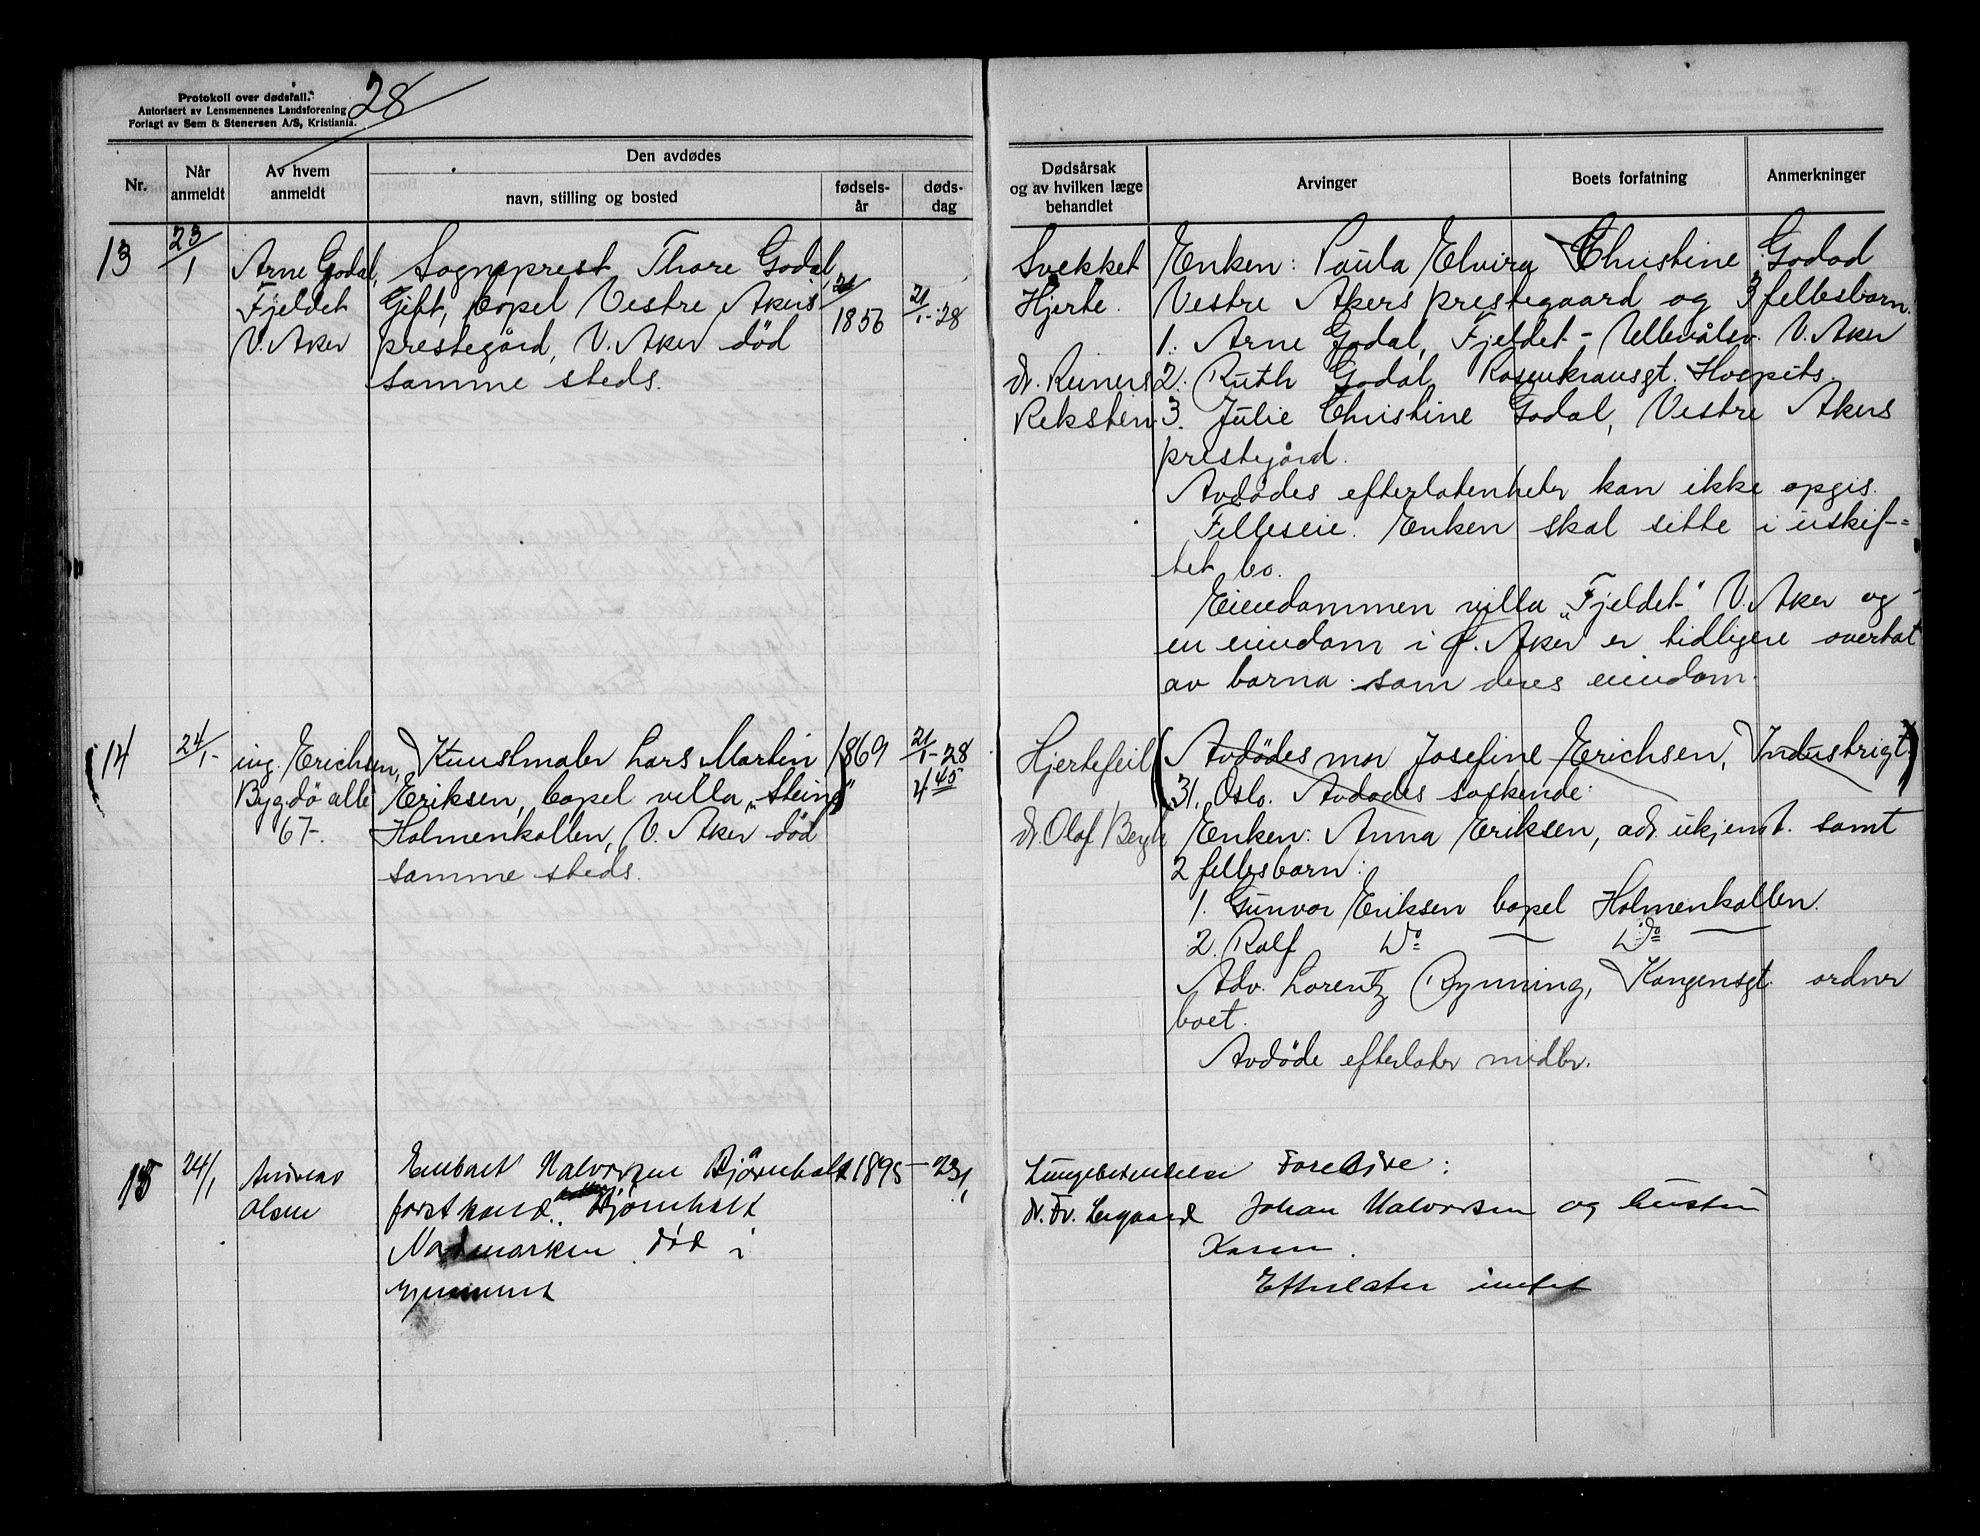 Protokoll over dødsfall.
Autorisert av Lensmennenes Landsforening
Forlagt av Sem & Stenersen A/S, Kristiania.
28
Nr.
Når anmeldt
Av hvem anmeldt
Den avdødes
navn, stilling og bosted
fødsels-år
døds-dag
Dødsårsak
og av hvilken læge
behandlet
Arvinger
Boets forfatning
Anmerkninger
13
23/1
Arne Godal,
Fjeldet
V. Aker
Sogneprest Thore Godal,
Gift, bopel Vestre Akers
prestegård, V. Aker død
samme steds.
1856
21/1-28
Svekket
Hjerte.
dr. Reiners
Reksten
Enken: Paula Elvira Christine Godal
Vestre Akers prestegaard og 3 fellesbarn.
1. Arne Godal, Fjeldet - Ullevålsv. V. Aker
2. Ruth Godal, Rosenkransgt. Hospits.
3. Julie Christine Godal, Vestre Akers
prestegård.
Avdødes efterlatenheter kan ikke opgis.
Felleseie. Enken skal sitte i uskif-
tet bo.
Eiendommen villa "Fjeldet" V. Aker og
en eiendom i Ø. Aker er tidligere overtat
av barna som deres eiendom.
14
24/1-
ing. Erichsen,
Bygdö alle
67-
Kunstmaler Lars Martin
Eriksen, bopel villa "Steinr"
Holmenkollen, V. Aker død
samme steds.
1869
21/1-28
4 45
Hjertefeil
dr. Olaf Bergh
(Avdödes mor Josefine Erichsen, Industrigt.
31. Oslo. Avdødes søskende:)
Enken: Anna Eriksen, adr. ukjent. samt
2 fellesbarn:
1. Gunvor Eriksen bopel Holmenkollen.
2. Rolf Do — Do —
Adv. Lorentz Rynning, Kongensgt. ordner
boet.
Avdöde efterlater midler.
15
24/1
Andreas
Olsen
Embret Halvorsen Bjørnholt
forstkand. Bjørnholt
Nordmarken. död i
hjemmet
1895
23/1
Lungebetendelse
dr. Fr. Lergaard
Foreldre:
Johan Halvorsen og hustru
Karen.
Etterlater intet